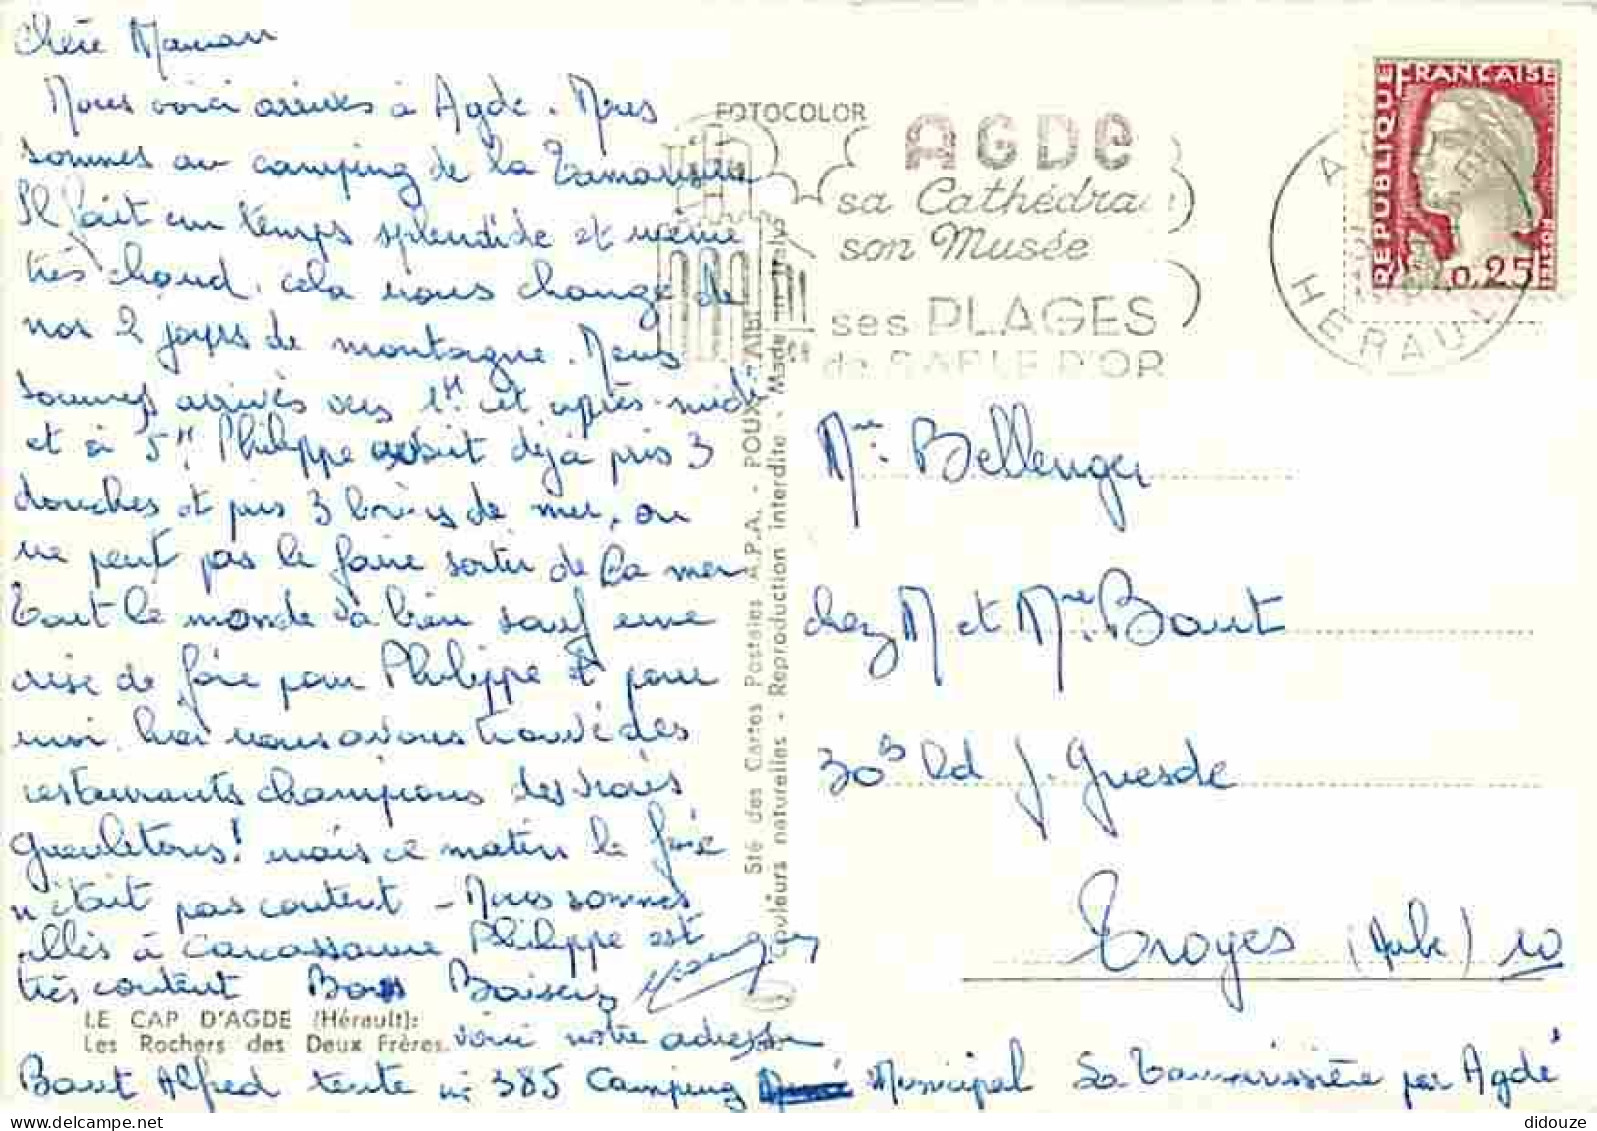 Chère Maman
Nous voici arrivés à Agde. Nous
sommes au camping de la Tamarissière
Il fait un temps splendide et même
très chaud, cela nous change de
nos 2 jours de montagne. Nous
sommes arrivés vers 1H et après-midi
et à 5H Philippe avait déjà pris 3
douches et pris 3 bains de mer, on
ne peut pas le faire sortir de la mer
Tout le monde va bien sauf une
crise de foie pour Philippe et pour
moi. hier nous avons trouvé des
restaurants champions des vrais
gueuletons! mais ce matin le foie
n'était pas content - Nous sommes
allés à Carcassonne Philippe est
très content Bons Baisers
LE CAP D'AGDE (Hérault):
Les Rochers des Deux Frères.
voici notre adresse
Baut Alfred tente n° 385 Camping Municipal La Tamarissière par Agde
FOTOCOLOR
Sté des Cartes Postales A.P.A. - POUX
Couleurs naturelles - Reproduction interdite - Made in Italy
AGDE
sa Cathédrale
son Musée
ses PLAGES
de SABLE D'OR
HÉRAULT
REPUBLIQUE FRANÇAISE
POSTES
0,25
Mme Bellenger
chez M et Mme Baut
30B Bd J. Guesde
Troyes (Aube) 10
didouze